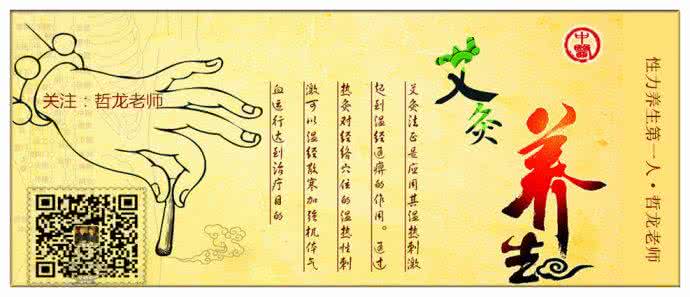 性力养生第一人·哲龙老师
中醫
艾灸
养生
艾灸法正是应用其温热刺激
起到温经通痹的作用。通过
热灸对经络穴位的温热性刺
激可以温经散寒加强机体气
血运行达到治疗目的
关注：哲龙老师